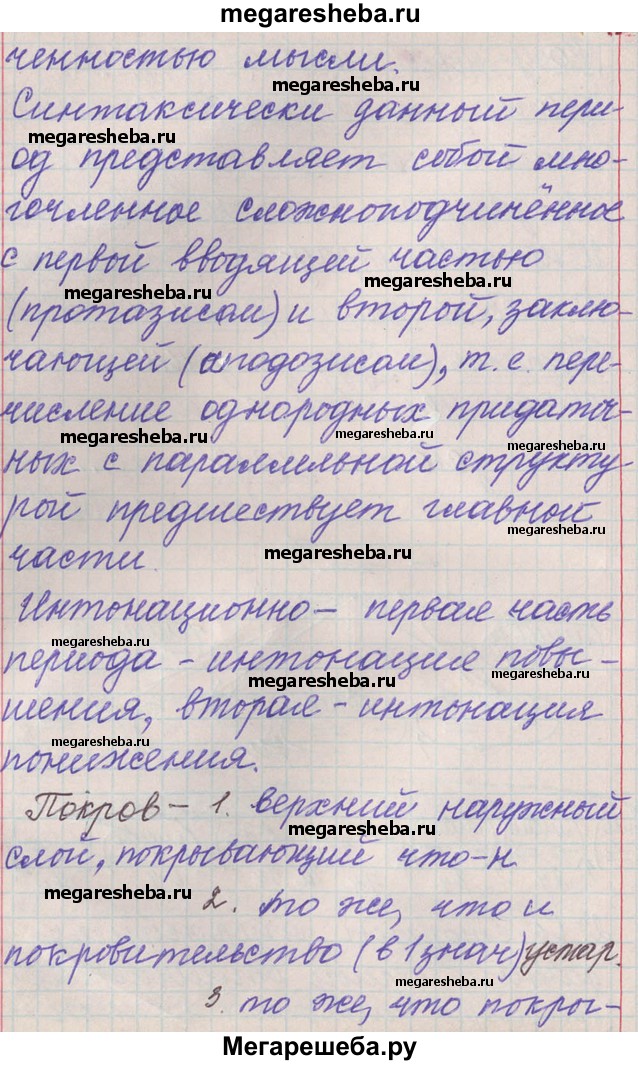 megaresheba.ru
ченностью мысли.
megaresheba.ru
Синтаксически данный пери-
megaresheba.ru
од представляет собой мно-
гочленное сложноподчинённое
с первой вводящей частью
megaresheba.ru
megaresheba.ru
(протазисом) и второй, заклю-
чающей (аподозисом), т. е. пере-
числение однородных придаточ-
megaresheba.ru
megaresheba.ru
megaresheba.ru
ных с параллельной структу-
рой предшествует главной
части.
megaresheba.ru
Интонационно – первая часть
megaresheba.ru
периода – интонация повы-
megaresheba.ru
megaresheba.ru
шения, вторая – интонация
megaresheba.ru
понижения.
Покров – 1. верхний наружный
megaresheba.ru
слой, покрывающий что-н
megaresheba.ru
2. то же, что и
покровительство (в 1 знач) устар.
megaresheba.ru
3. то же, что покры-
Мегарешеба.ру